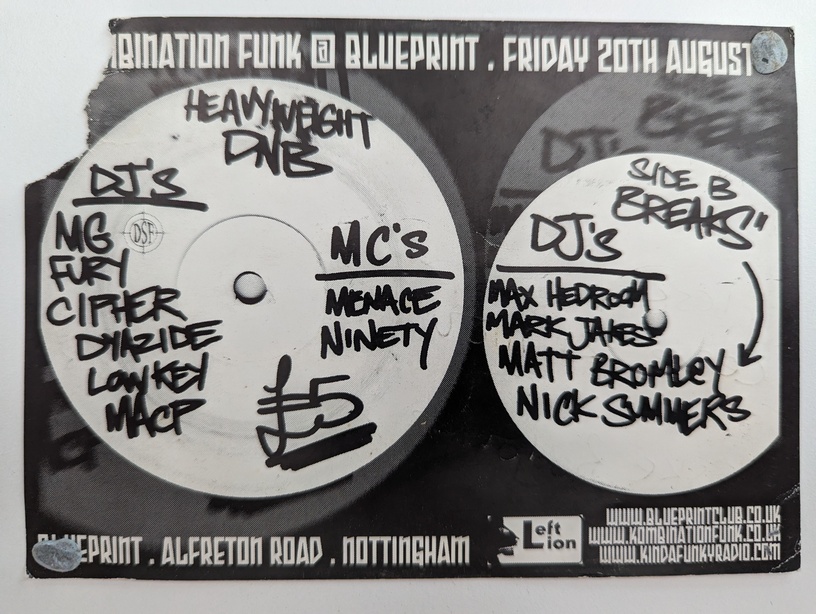 MBINATION FUNK @ BLUEPRINT . FRIDAY 20TH AUGUST
HEAVYWEIGHT
DNB
DJ's
MG
DSF
FURY
CIPHER
DYAZIDE
LOWKEY
MACP
MC's
MENACE
NINETY
£5
SIDE B
BREAKS"
DJ's
MAX HEDROOM
MARK JAKES
MATT BROMLEY
NICK SUMMERS
BLUEPRINT . ALFRETON ROAD . NOTTINGHAM
Left
Lion
WWW.BLUEPRINTCLUB.CO.UK
WWW.KOMBINATIONFUNK.CO.UK
WWW.KINDAFUNKYRADIO.COM